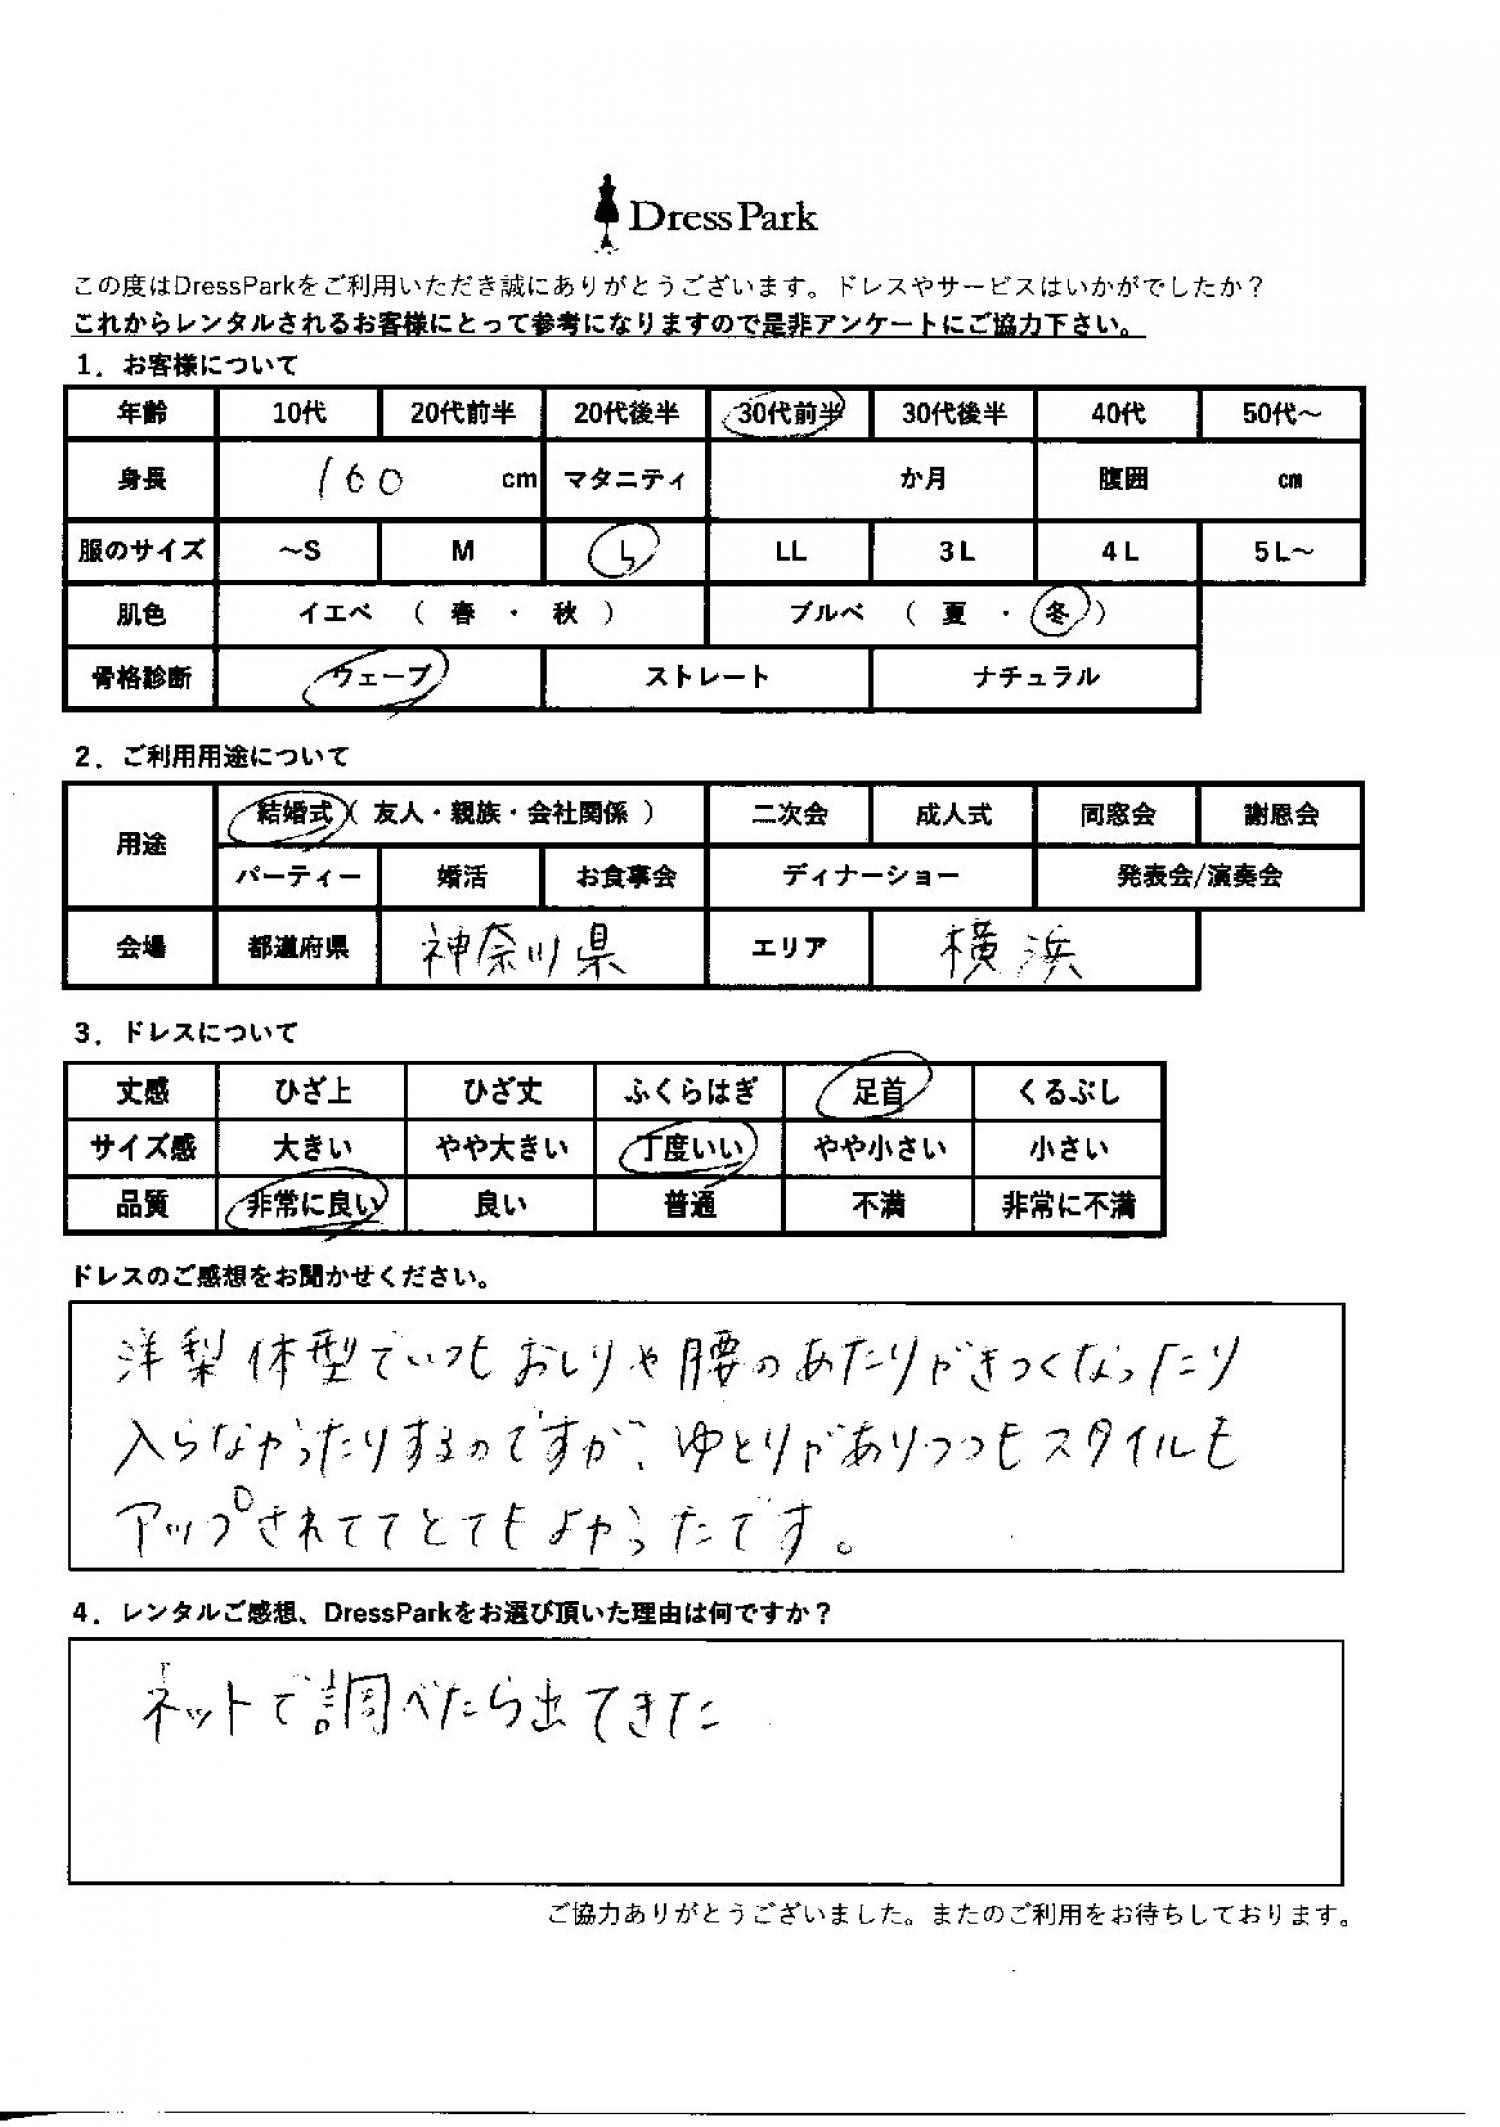 Dress Park
この度はDressParkをご利用いただき誠にありがとうございます。ドレスやサービスはいかがでしたか？
これからレンタルされるお客様にとって参考になりますので是非アンケートにご協力下さい。
1．お客様について
年齢 10代 20代前半 20代後半 30代前半 30代後半 40代 50代～
身長 160 cm マタニティ か月 腹囲 cm
服のサイズ ～S M L LL 3L 4L 5L～
肌色 イエベ （ 春 ・ 秋 ） ブルベ （ 夏 ・ 冬 ）
骨格診断 ウェーブ ストレート ナチュラル
2．ご利用用途について
用途 結婚式（ 友人・親族・会社関係 ） 二次会 成人式 同窓会 謝恩会
パーティー 婚活 お食事会 ディナーショー 発表会/演奏会
会場 都道府県 神奈川県 エリア 横浜
3．ドレスについて
丈感 ひざ上 ひざ丈 ふくらはぎ 足首 くるぶし
サイズ感 大きい やや大きい 丁度いい やや小さい 小さい
品質 非常に良い 良い 普通 不満 非常に不満
ドレスのご感想をお聞かせください。
洋梨体型でいつもおしりや腰のあたりがきつくなったり
入らなかったりするのですが、ゆとりがありつつもスタイルも
アップされててとてもよかったです。
4．レンタルご感想、DressParkをお選び頂いた理由は何ですか？
ネットで調べたら出てきた
ご協力ありがとうございました。またのご利用をお待ちしております。